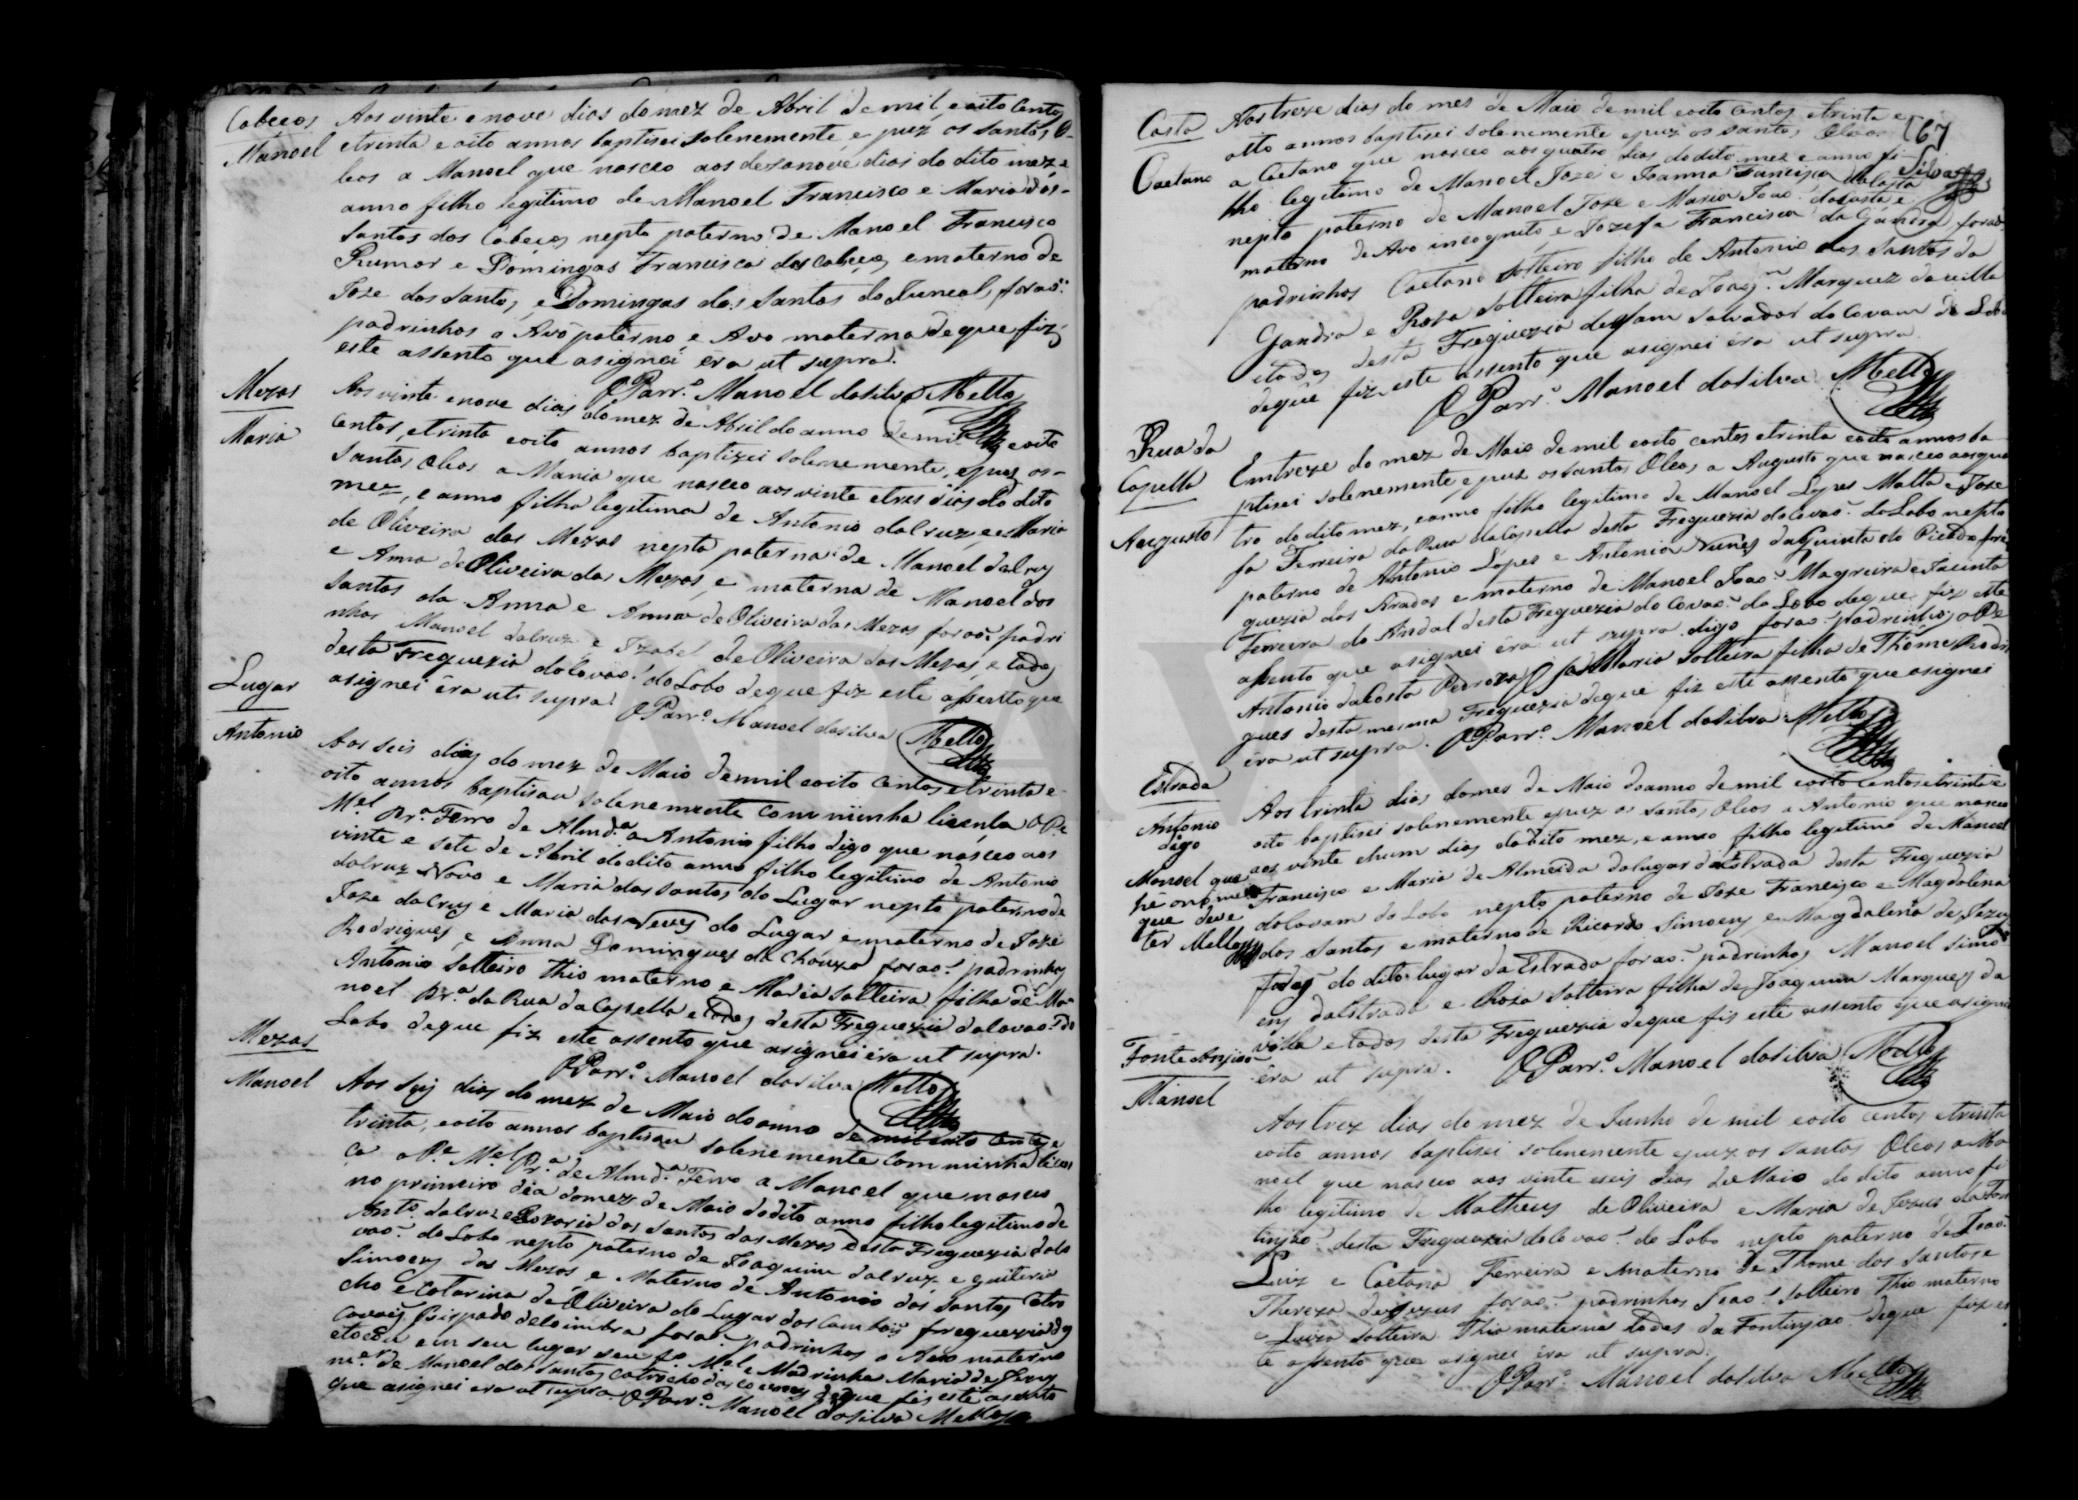 Cabeços
Manoel
Aos vinte e nove dias do mez de Abril de mil, e oito centos
e trinta e oito annos baptisei solenemente, e puz os Santos O-
leos a Manoel que nasceo aos desanove dias do dito mez, e
anno filho legitimo de Manoel Francisco e Maria dos-
Santos dos Cabeços nepto paterno de Manoel Francisco
Rumor e Domingas Francisca dos Cabeços e materno de
Joze dos Santos, e Domingas dos Santos do Juncal, foraõ
padrinhos o Avo paterno, e Avo materna de que fiz
este assento que asignei era ut supra.
O Parr.º Manoel da Silva Mello
Mezas
Maria
Aos vinte e nove dias do mez de Abril do anno de mil e oito
centos, e trinta e oito annos baptizei solenemente, e puz os-
Santos Oleos a Maria que nasceo aos vinte e tres dias do dito
mez, e anno filha legitima de Antonio da Cruz, e Maria
de Oliveira das Mezas nepta paterna de Manoel da Cruz
e Anna de Oliveira das Mezas, e materna de Manoel dos
Santos da Anna e Anna de Oliveira das Mezas foraõ padri
nhos Manoel da Cruz e Izabel de Oliveira das Mezas, e todos
desta Freguezia do Covaõ do Lobo de que fiz este assento que
asignei êra ut supra
O Parr.º Manoel da Silva Mello
Lugar
Antonio
Aos seis dias do mez de Maio de mil e oito centos e trinta e
oito annos baptisou solenemente com minha licença o P.e
M.el Pr.ª Ferro de Almd.ª a Antonio filho digo que nasceo aos
vinte e sete de Abril do dito anno filho legitimo de Antonio
da Cruz Novo e Maria dos Santos do Lugar nepto paterno de
Joze da Cruz e Maria das Neves do Lugar e materno de Joze
Rodrigues, e Anna Domingues da Chouza foraõ padrinhos
Antonio Solteiro Thio materno e Maria Solteira filha de Ma-
noel Pr.ª da Rua da Capella e todos desta Freguezia do Covaõ do
Lobo de que fiz este assento que asignei êra ut supra.
O Parr.º Manoel da Silva Mello
Mezas
Manoel
Aos seis dias do mez de Maio do anno de mil e oito centos e
trinta, e oito annos baptisou solenemente com minha licen
ça o P.e M.el Pr.ª de Almd.ª Ferro a Manoel que nasceo
no primeiro dia do mez de Maio do dito anno filho legitimo de
Ant.º da Cruz e Rozaria dos Santos das Mezas desta Freguezia do Co
vaõ do Lobo nepto paterno de Joaquim da Cruz e Quiteria
Simoens das Mezas, e Materno de Antonio dos Santos Catro
cho e Catarina de Oliveira do Lugar dos Camboiz freguezia dos
Covoiz Bispado de Coimbra foraõ padrinhos o Avo materno
e tocou em seu lugar seu f.º M.el e Madrinha Maria de Jezus
m.er de Manoel dos Santos Catrocho dos Covoes de que fis este asento
que asignei era ut supra O Parr.º Manoel da Silva Mello
67
Silva
Costa
Caetano
Aos treze dias do mes de Maio de mil e oito centos e trinta e
oito annos baptizei solenemente e puz os Santos Oleos
a Caetano que nasceo aos quatro dias do dito mez e anno fi-
lho legitimo de Manoel Joze e Joanna Francisca da Costa
nepto paterno de Manoel Joze e Maria Joaõ da Costa e
materno de Avo incognito e Jozefa Francisca da Gandra foraõ
padrinhos Caetano solteiro filho de Antonio dos Santos da
Gandra e Roza solteira filha de Joaq.m Marquez da Villa
e todos desta Freguezia de Sam Salvador do Covam do Lobo
de que fiz este assento que asignei êra ut supra.
O Parr.º Manoel da Silva Mello
Rua da
Capella
Augusto
Em treze do mez de Maio de mil e oito centos e trinta e oito annos ba-
ptisei solenemente, e puz os Santos Oleos a Augusto que nasceo aos qua
tro do dito mez, e anno filho legitimo de Manoel Lopes Malta e Joze
fa Ferreira da Rua da Capella desta Freguezia do Covaõ do Lobo nepto
paterno de Antonio Lopes e Antonia Nunes da Quinta do Picado fre
guezia das Aradas e materno de Manoel Joaõ Magreira e Jacinta
Ferreira do Andal desta Freguezia do Covaõ do Lobo de que fiz este
assento que asignei êra ut supra digo foraõ padrinhos, o P.e
Antonio da Costa Pedroza e Maria solteira filha de Thome Rodri
gues desta mesma Freguezia de que fiz este assento que asignei
êra ut supra. O Parr.º Manoel da Silva Mello
Estrada
Antonio
digo
Manoel que
he o nome
que deve
ter Mello
Aos trinta dias do mes de Maio do anno de mil e oito centos e trinta e
oito baptisei solenemente e puz os Santos Oleos a Antonio que nasceo
aos vinte e hum dias do dito mez, e anno filho legitimo de Manoel
Francisco e Maria de Almeida do lugar da Estrada desta Freguezia
do Covam do Lobo nepto paterno de Joze Francisco e Magdalena
dos Santos e materno de Ricardo Simoens e Magdalena de Jezus
todos do dito lugar da Estrada foraõ padrinhos Manoel Simo
ens da Estrada e Roza solteira filha de Joaquim Marques da
Villa e todos desta Freguezia de que fis este assento que asignei
êra ut supra. O Parr.º Manoel da Silva Mello
Fonte
Manoel
Aos trez dias do mez de Junho de mil e oito centos e trinta
e oito annos baptisei solenemente e puz os Santos Oleos a Ma
noel que nasceo aos vinte e seis dias de Maio do dito anno fi
lho legitimo de Matheus de Oliveira e Maria de Jezus da Fon
tinjaõ desta Freguezia do Covaõ do Lobo nepto paterno de Joaõ
Luiz e Caetana Ferreira e materno de Thome dos Santos e
Thereza de Jezus foraõ padrinhos Joaõ Solteiro Thio materno
e Luiza solteira Thia materna todos da Fontinjaõ de que fiz es
te assento que asignei êra ut supra.
O Parr.º Manoel da Silva Mello